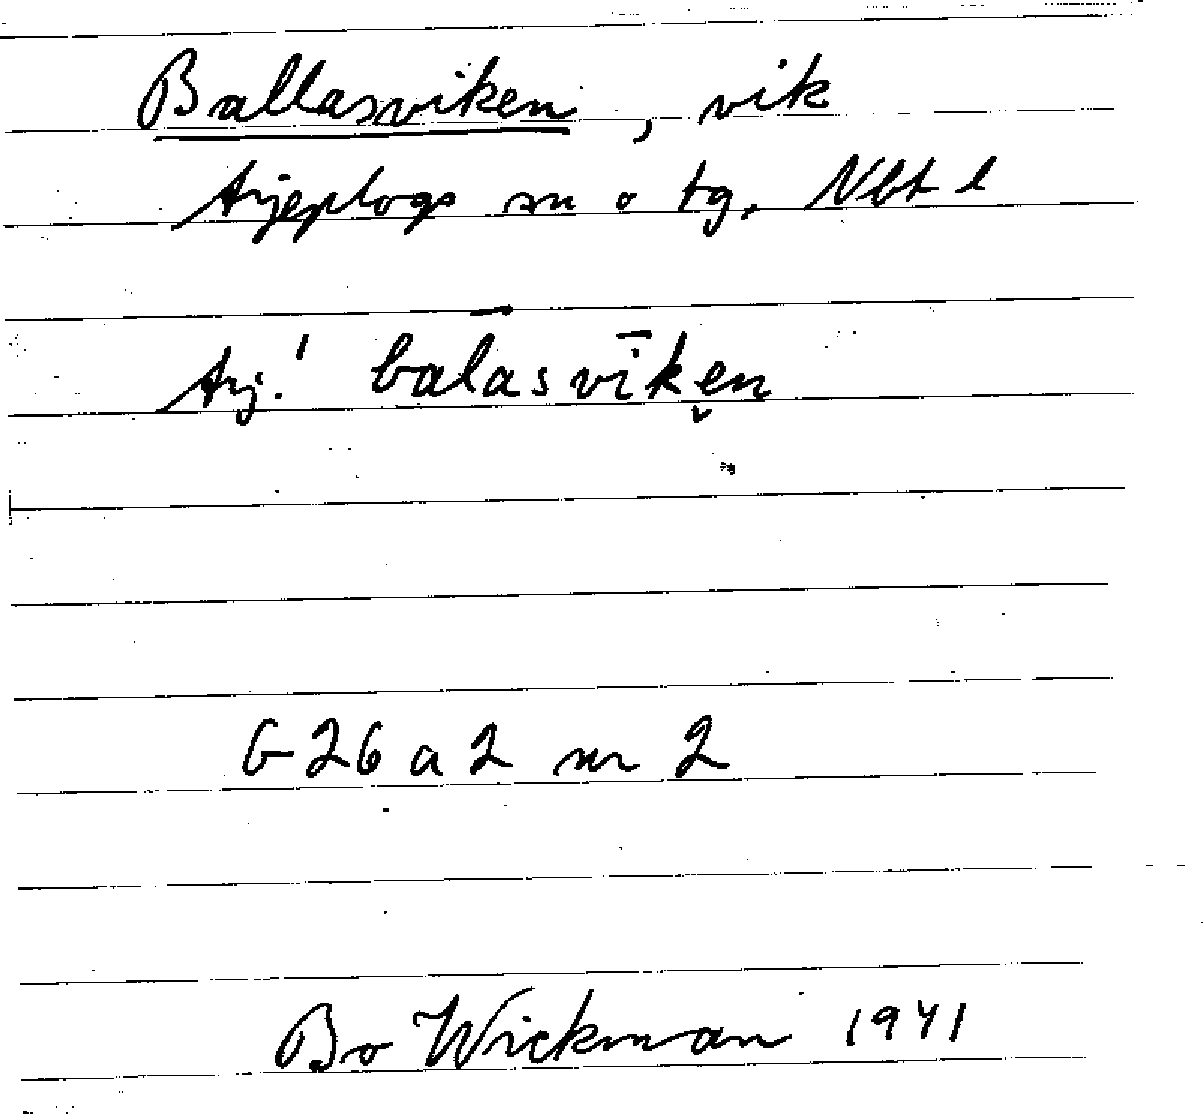 Ballasviken, vik
Arjeplogs sn o tg. Nbt l
Arj.! bal̄asvīkẹn
G 26 a 2 nr 2
Bo Wickman 1941